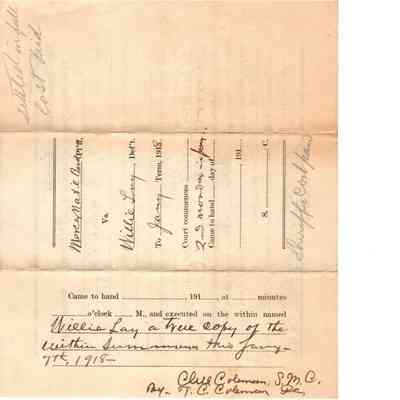 settled in full
cost paid
Pl'ff.
Vs.
Willie Lay Def't.
To Jany Term, 1918
Court commences
2nd monday in jany.
Came to hand day of
191
S. C.
Sheriffs Cost paid
Came to hand , 191 , at minutes
o'clock M., and executed on the within named
Willie Lay a true copy of the
within Summons this Jany
7th, 1918
Cliff Coleman, S.M.C.
By. T. C. Coleman